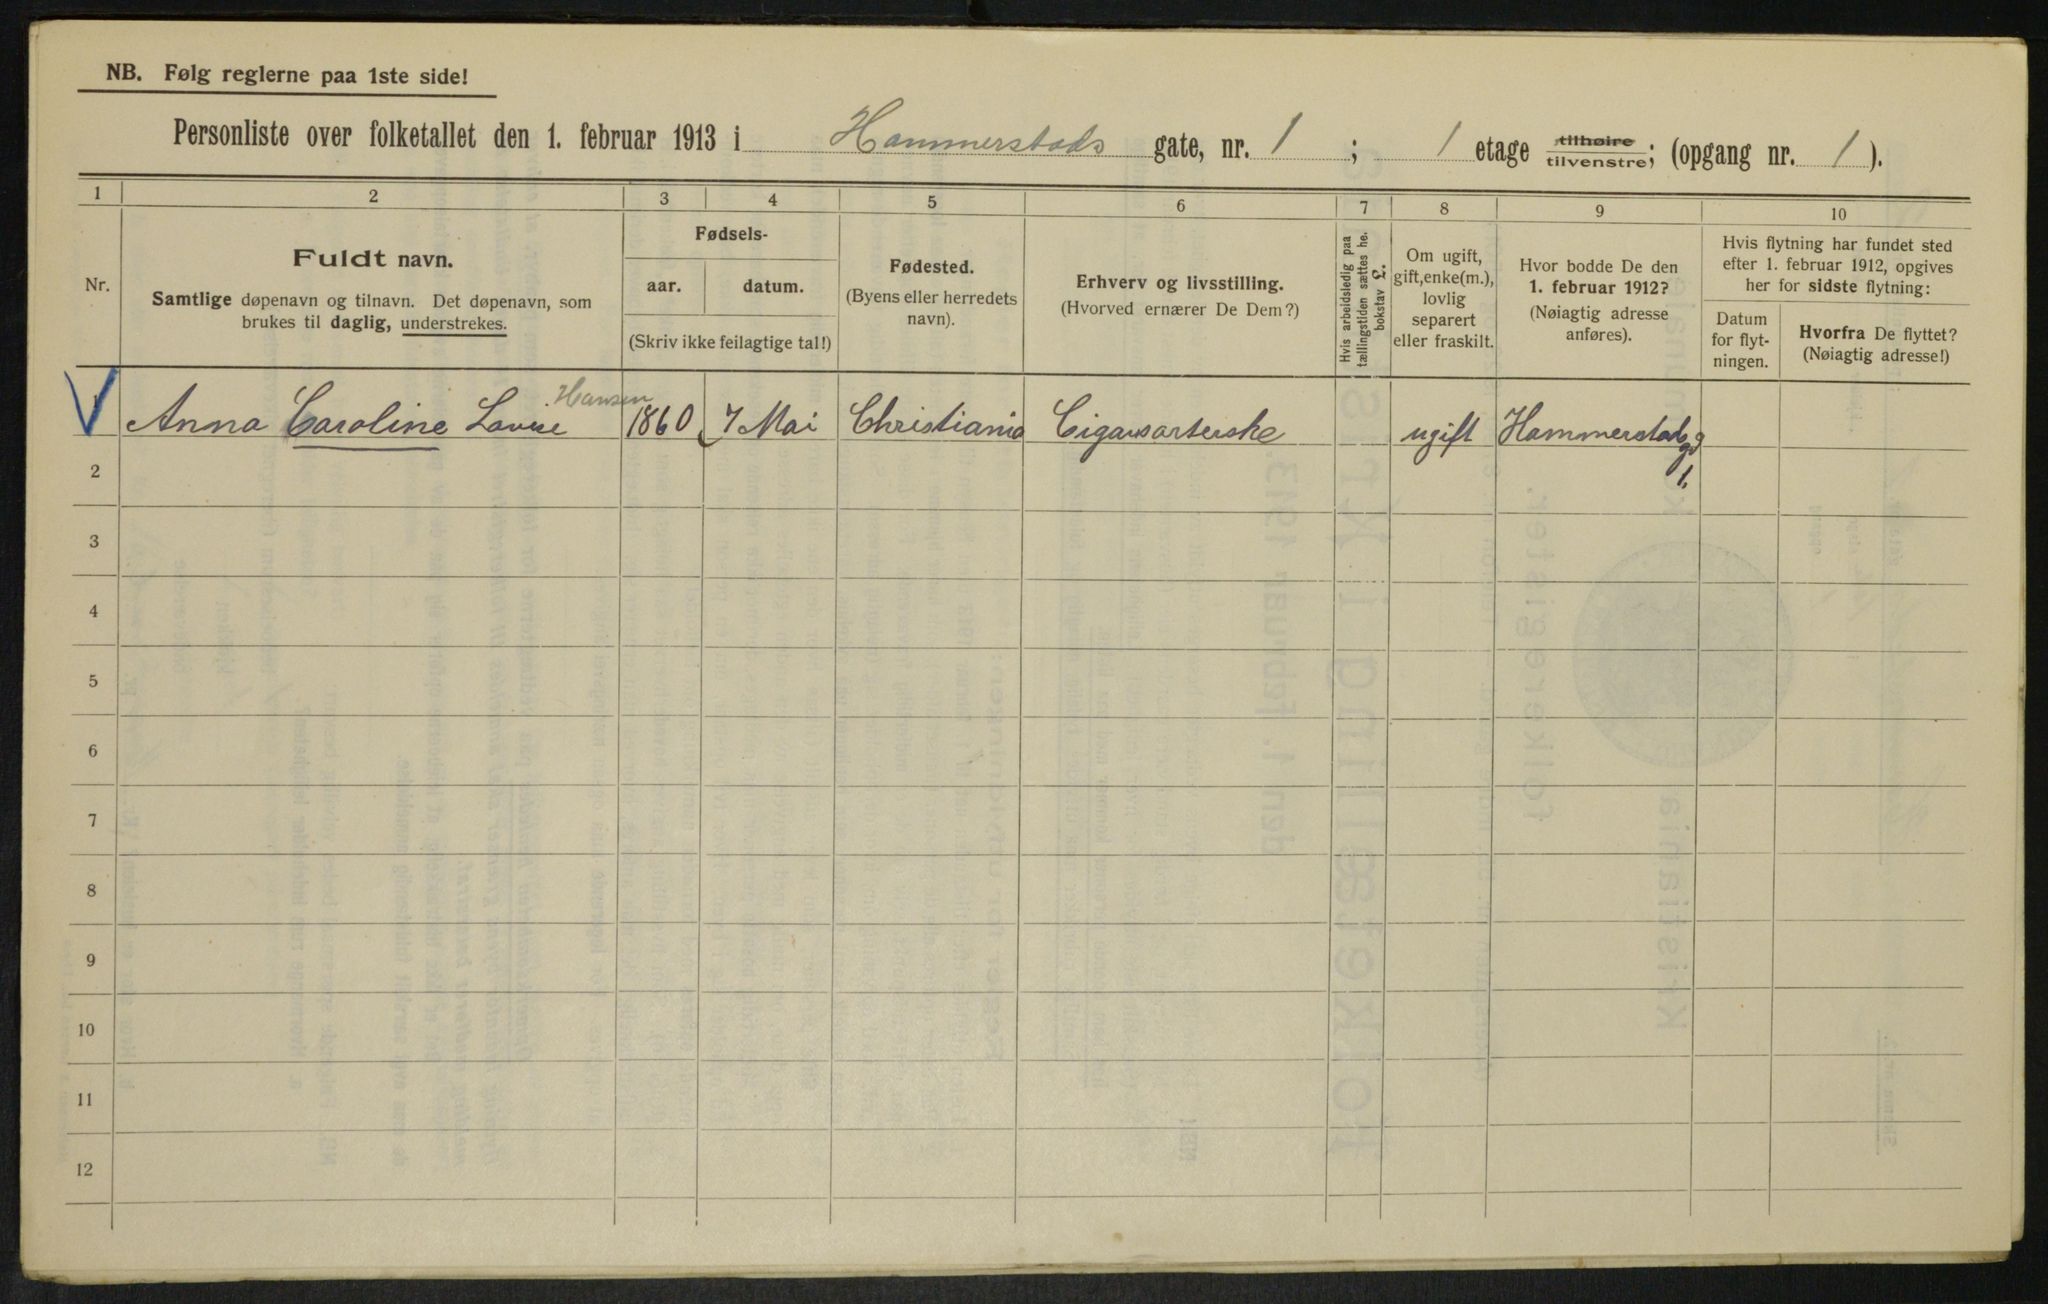 NB. Følg reglerne paa 1ste side!
Personliste over folketallet den 1. februar 1913 i Hammerstads gate, nr. 1 ; 1 etage tilhøire tilvenstre; (opgang nr. 1 ).
1 2 3 4 5 6 7 8 9 10
Nr.
Fuldt navn.
Samtlige døpenavn og tilnavn. Det døpenavn, som
brukes til daglig, understrekes.
Fødsels-
aar. datum.
(Skriv ikke feilagtige tal!)
Fødested.
(Byens eller herredets
navn).
Erhverv og livsstilling.
(Hvorved ernærer De Dem?)
Hvis arbeidsledig paa
tællingstiden sættes he.
bokstav £.
Om ugift,
gift, enke(m.),
lovlig
separert
eller fraskilt.
Hvor bodde De den
1. februar 1912?
(Nøiagtig adresse
anføres).
Hvis flytning har fundet sted
efter 1. februar 1912, opgives
her for sidste flytning:
Datum
for flyt-
ningen.
Hvorfra De flyttet?
(Nøiagtig adresse!)
Hansen
1 Anna Caroline Lovise 1860 7 Mai Christiania Cigarsorterske ugift Hammerstadsg
1.
2
3
4
5
6
7
8
9
10
11
12